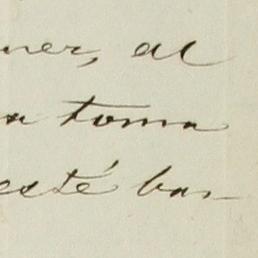 ner, al
a toma
esté bas-